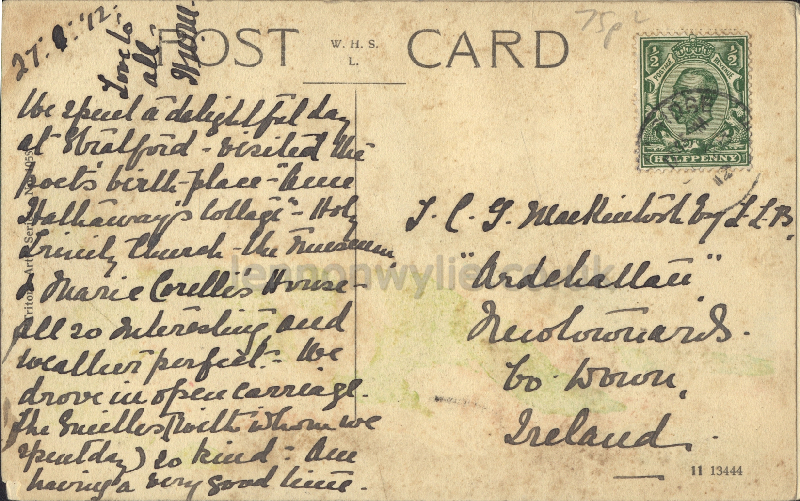 27. '12.
Love to
all -
POST CARD
W. H. S.
L.
75p
½ ½
POSTAGE REVENUE
HALFPENNY
We spent a delightful day
at Stratford - visited the
poet's birth-place - "Anne
Hathaway's Cottage" - Holy
Trinity Church - the Museum,
& Marie Corelli's House -
all so interesting and
weather perfect. - We
drove in open carriage.
The (with whom we
spent day) so kind - Am
having a very good time.
T. C. G. Mackintosh Esq L.L.B.
"Ardchattan"
Newtownards.
Co. Down,
Ireland.
lennonwylie.co.uk
11 13444